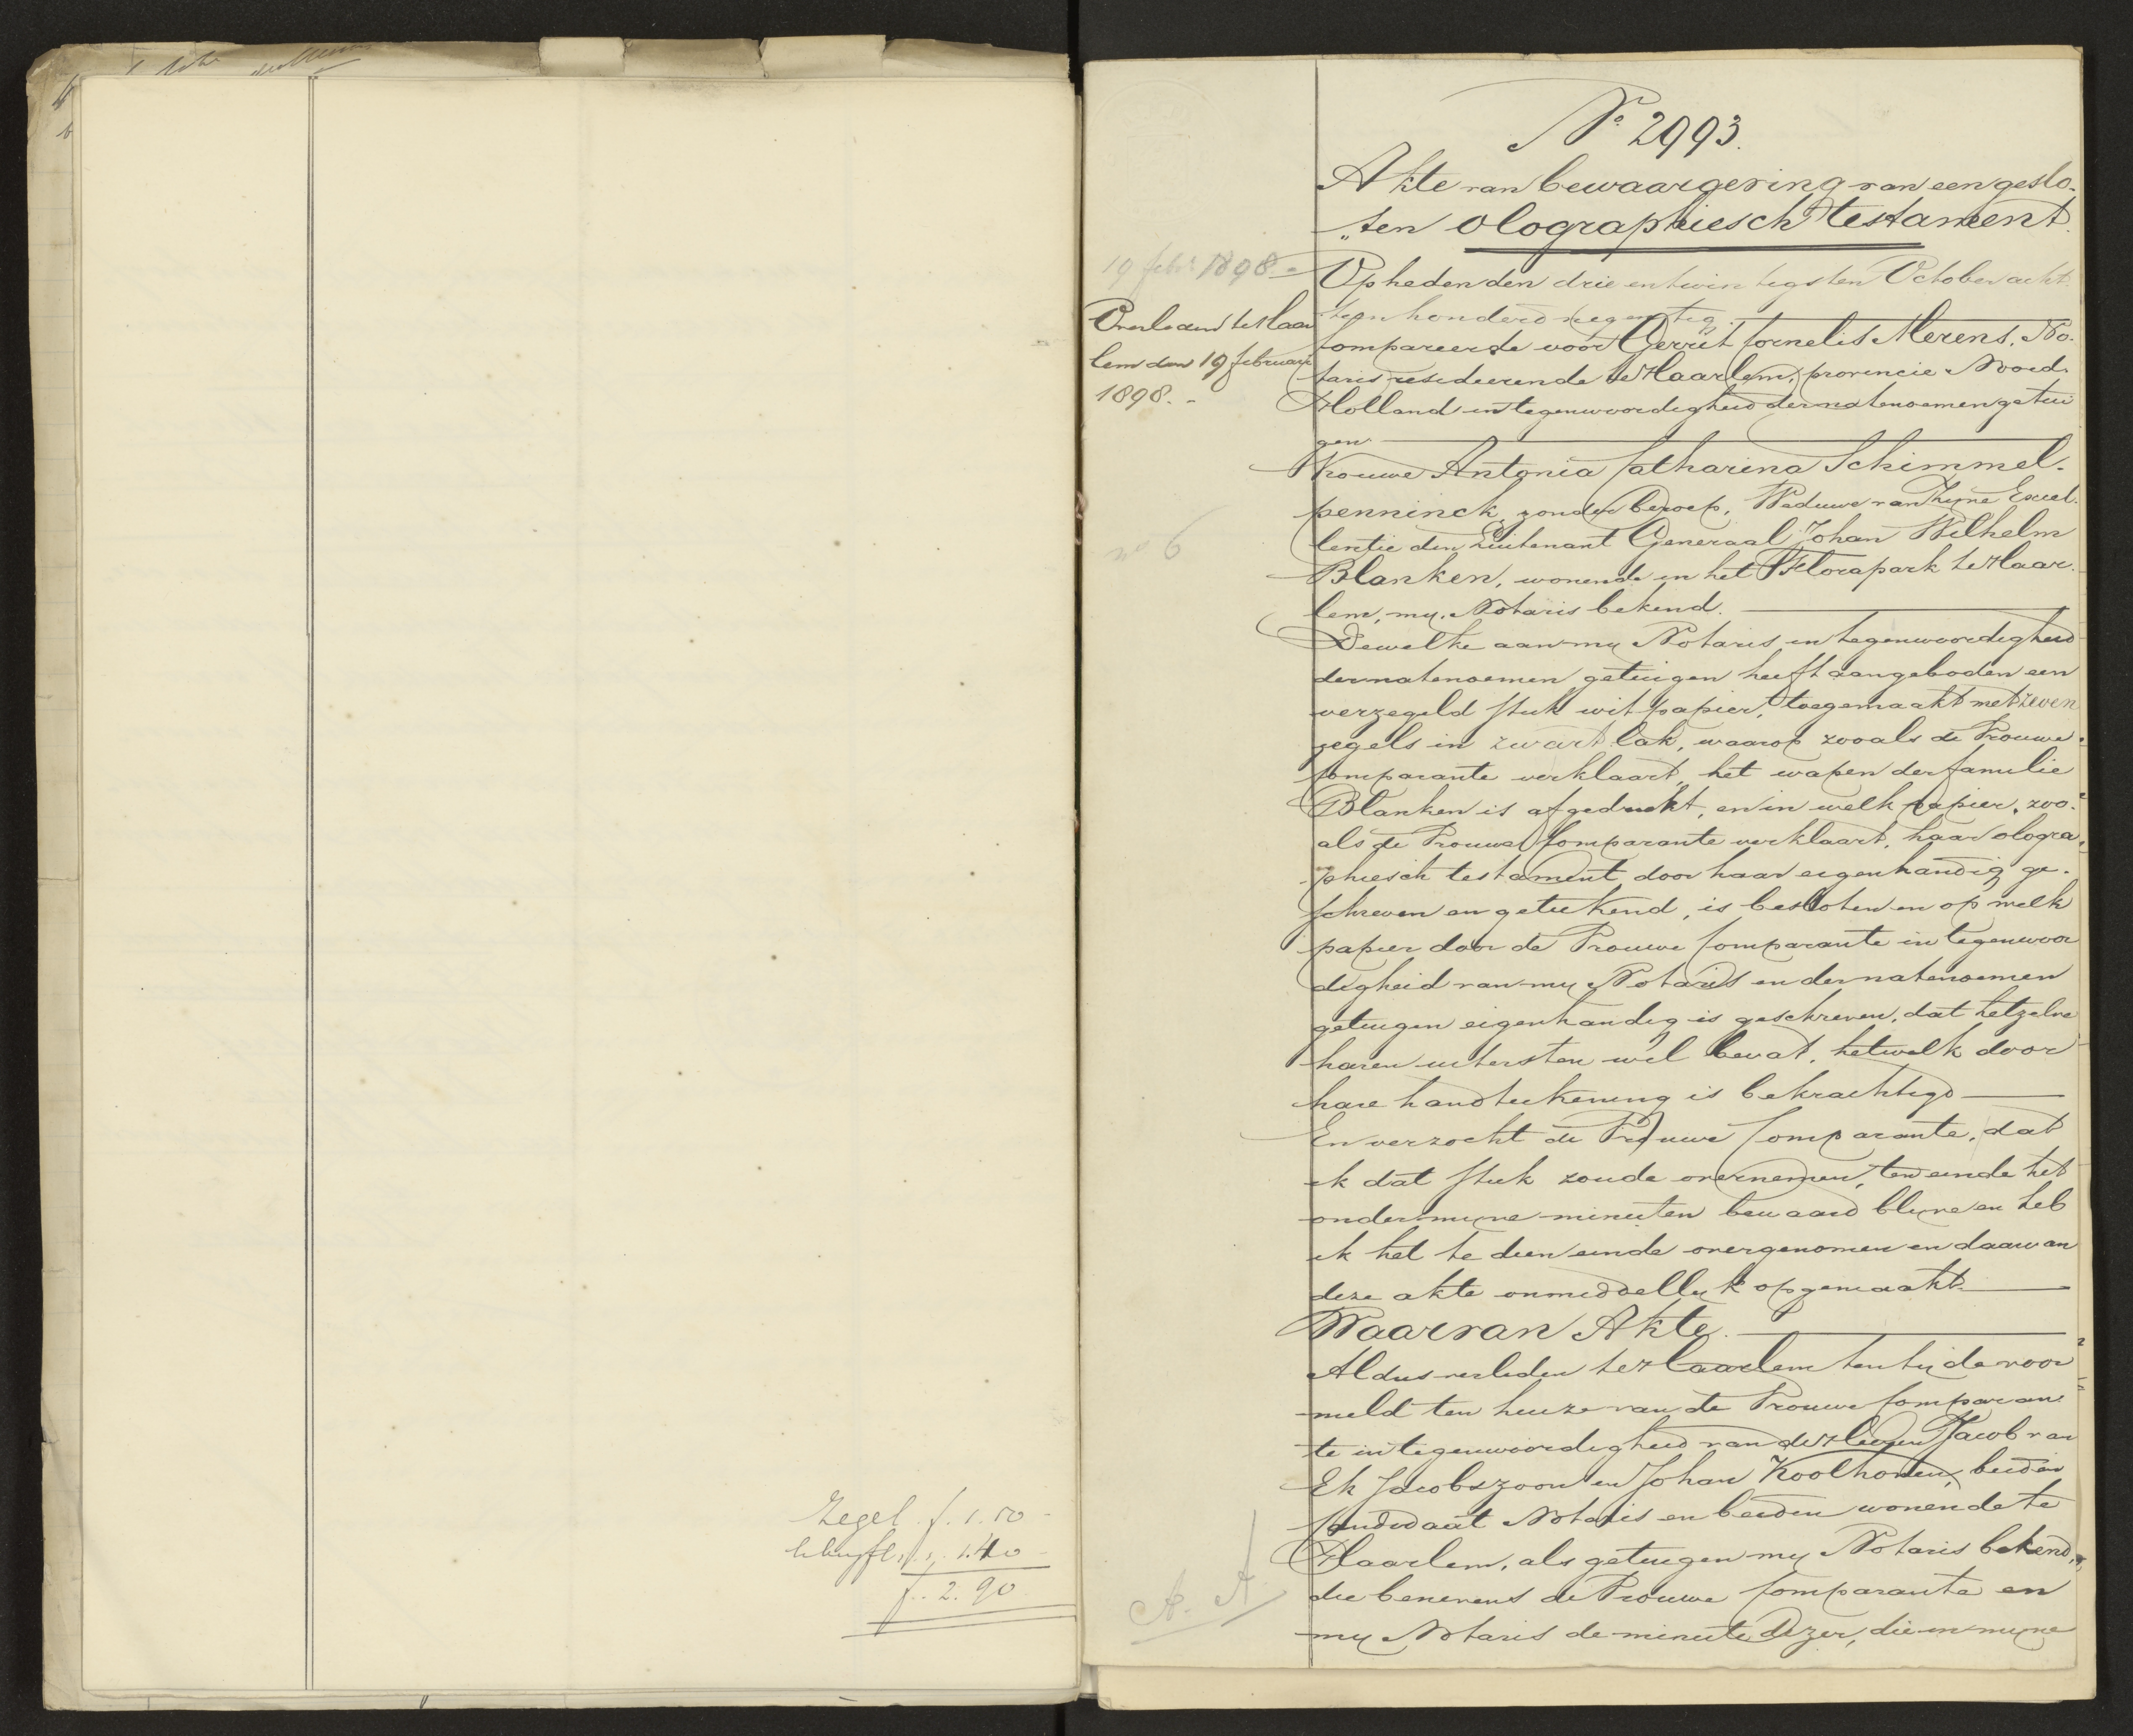 Zegel f. 1.50
1.40
f. 2.90
No 2993.
Akte van bewaargeving van een geslo-
„ten olographiesch testament.
19 febr 1898
Overleden te Haar
lem den 19 februari
1898.-
no 6
Op heden den drie en twintigsten October acht-
tien honderd negentig
compareerde voor Gerrit Cornelis Merens, No-
taris resideerende te Haarlem, provincie Noord-
Holland in tegenwoordigheid der natenoemen getui
gen
Vrouwe Antonia Catharina Schimmel-
penninck, zonder beroep, Weduwe van Zijne Excel-
lentie den Luitenant Generaal Johan Wilhelm
Blanken, wonende in het Florapark te Haar-
lem, mij, Notaris bekend.
Dewelke aan mij Notaris in tegenwoordigheid
der natenoemen getuigen heeft aangeboden een
verzegeld stuk wit papier, toegemaakt met zeven
zegels in zwart lak, waarop zooals de Vrouwe
Comparante verklaart, het wapen der familie
Blanken is afgedrukt, en in welk papier, zoo-
als de Vrouwe Comparante verklaart, haar ologra-
phiesch testament door haar eigenhandig ge-
schreven en geteekend, is besloten en op welk
papier door de Vrouwe Comparante in tegenwoor
digheid van mij Notaris en der natenoemen
getuigen eigenhandig is geschreven, dat hetzelve
haren uitersten wil bevat, hetwelk door
hare handteekening is bekrachtigd
En verzocht de Vrouwe Comparante, dat
ik dat stuk zoude overnemen, ten einde het
onder mijne minuten bewaard blijve en heb
ik het te dien einde overgenomen en daarvan
deze akte onmiddellijk opgemaakt.
Waarvan Akte.
Aldus verleden te Haarlem ten tijde voor
meld ten huize van de Vrouwe Comparan
te in tegenwoordigheid van de Heeren Jacob van
Ek Jacobszoon en Johan Koolhoven, beiden
kandidaat Notaris en beiden wonende te
Haarlem, als getuigen mij Notaris bekend,
die benevens de Vrouwe Comparante en
mij Notaris de minute dezer, die in mijne